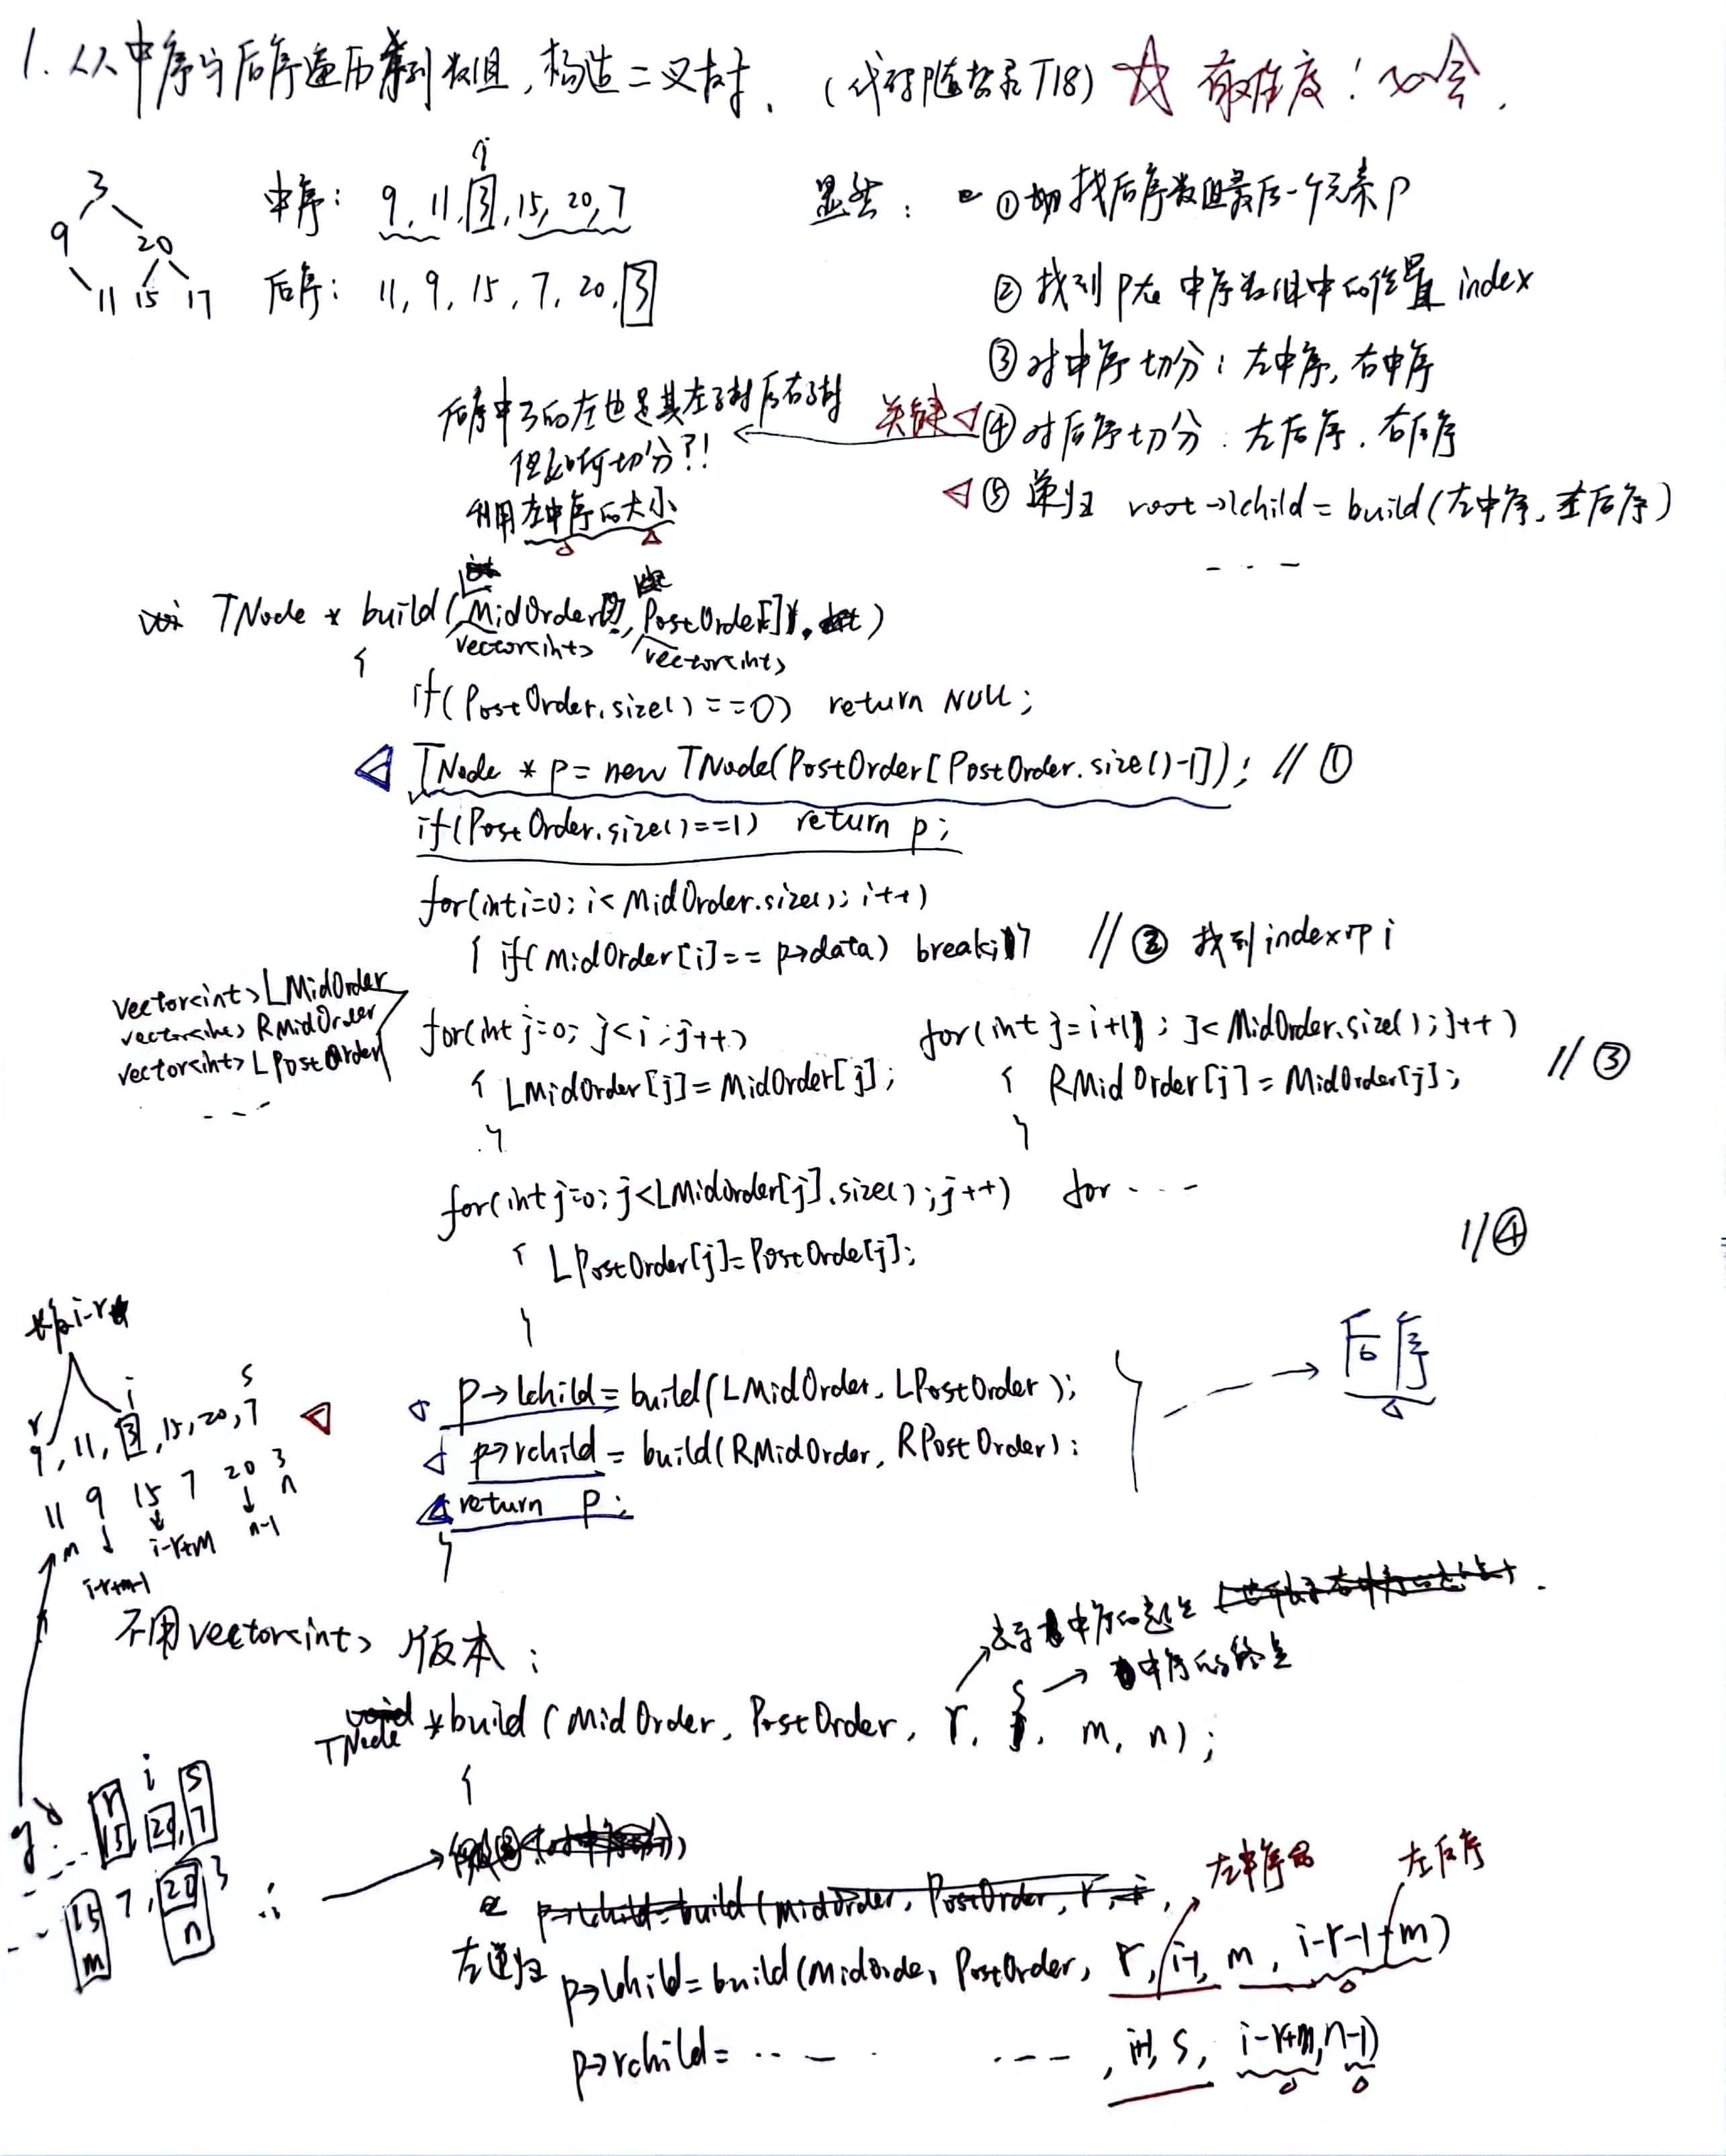 1. 从中序与后序遍历序列数组,构造二叉树. (代码随想录T18) ☆ 有难度! 必会.
3
9 20
11 15 17
i
中序: 9, 11, 3, 15, 20, 7
后序: 11, 9, 15, 7, 20, 3
显然:
① 找后序数组最后一个元素 p
② 找到 p在 中序数组中的位置 index
③ 对中序切分: 左中序, 右中序
关键 ④ 对后序切分: 左后序. 右后序
⑤ 递归 root→lchild = build(左中序, 左后序)
- - -
后序中3的左也是其左子树后右子树
但如何切分?!
利用左中序的大小
TNode * build(MidOrder, PostOrder)
vector<int> vector<int>
{
if(PostOrder.size()==0) return NULL;
TNode * p = new TNode(PostOrder[PostOrder.size()-1]); // ①
if(PostOrder.size()==1) return p;
for(int i=0; i<MidOrder.size(); i++)
{ if(MidOrder[i]== p→data) break; } // ② 找到index即 i
vector<int> LMidOrder
vector<int> RMidOrder
vector<int> LPostOrder
- - -
for(int j=0; j<i; j++) for(int j=i+1; j<MidOrder.size(); j++)
{ LMidOrder[j]=MidOrder[j]; { RMidOrder[j]=MidOrder[j]; // ③
} }
for(int j=0; j<LMidOrder[j].size(); j++) for - - -
{ LPostOrder[j]=PostOrde[j]; // ④
}
p→lchild = build(LMidOrder, LPostOrder);
p→rchild = build(RMidOrder, RPostOrder);
return p;
}
→ 后序
i-r
r i s
9, 11, 3, 15, 20, 7
11 9 15 7 20 3
m i-r+m n-1 n
i-r+m-1
不用vector<int> 版本:
中序的起点
中序的终点
TNode *build (MidOrder, PostOrder, r, s, m, n);
{
r i s
15, 20, 7
15 7, 20 3
m n
左中序 左后序
左递归 p→lchild=build(MidOrde, PostOrder, r, i-1, m, i-r-1+m)
p→rchild= - - - - - -, i+1, s, i-r+m, n-1)